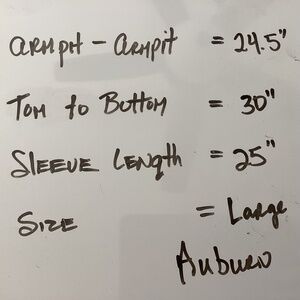 ARMPIT - ARMPIT = 24.5"
TOM to BOTTOM = 30"
SLEEVE LENGTH = 25"
SIZE = Large
Auburn